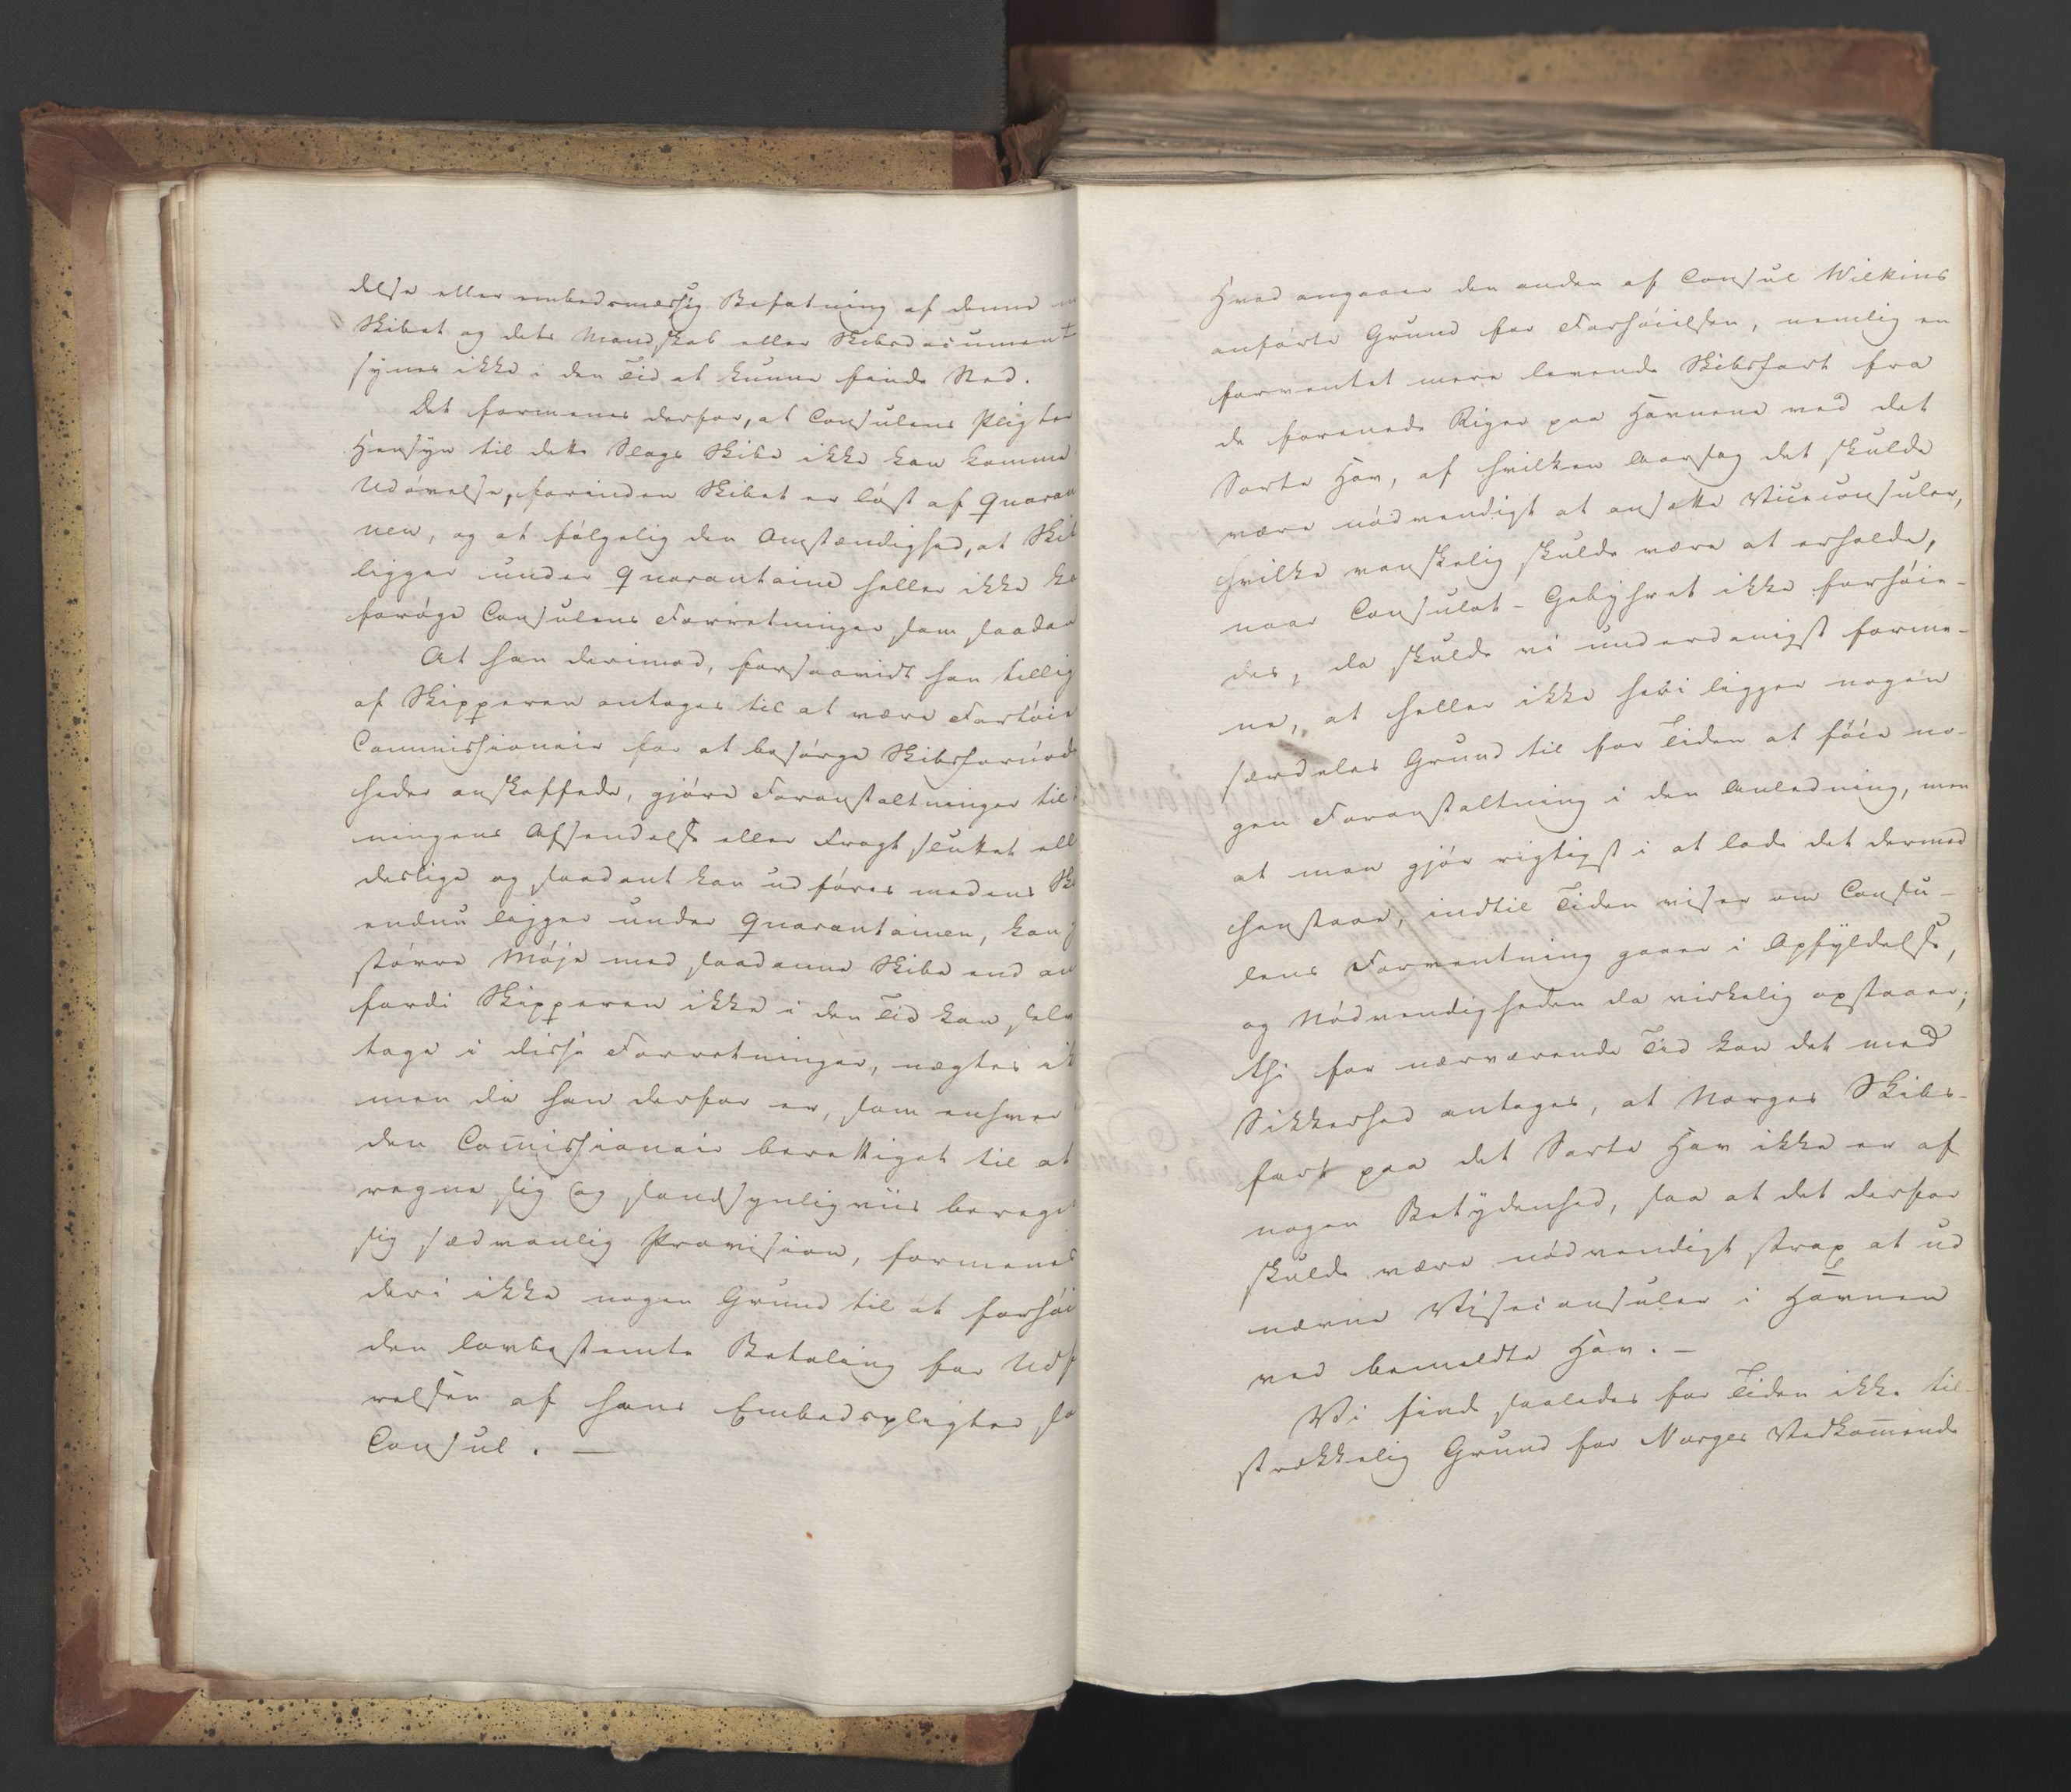 delse eller embedsmæssig Befatning af denne
Skibet og dets Mandskab eller Skibsdocument
synes ikke i den Tid at kunne finde Sted.
Det formenes derfor, at Consulens Pligter
Hensyn til dette Slags Skibe ikke kan komme
Udøvelse, forinden Skibet er løst af Quaran
nen, og at følgelig den Omstændighed, at Skib
ligger under Quarantaine heller ikke ka
forøge Consulens Forretninger som saadan
At han derimod, forsaavidt han tillig
af Skipperen antages til at være Fartøie
Commissionair for at besørge Skibsfornød
heder anskaffede, gjøre Foranstaltninger til
ningens Afsendelse eller Fragt sluttet ell
deslige og saadant kan udføres medens Sk
endnu ligger under Quarantainen, kan
større Møje med saadanne Skibe end an
fordi Skipperen ikke i den Tid kan selv
tage i disse Forretninger, nægtes ik
men da han derfor er, som enhver
den Com̅issionair berettiget til at
regne sig og sandsynligviis bereg
sig sædvanlig Provision, formenes
deri ikke nogen Grund til at forhøi
den lovbestemte Betaling for Udf
relsen af hans Embedspligter so
Consul. —
Hvad angaaer den anden af Consul Wilkins
anførte Grund for Forhøielsen, nemlig en
forventet mere levende Skibsfart fra
de forenede Riger paa Havnene ved det
Sorte Hav, af hvilken Aarsag det skulde
være nødvendigt at ansætte Viceconsuler,
hvilke vanskelig skulde være at erholde,
naar Consulat-Gebyhret ikke forhøie-
des, da skulde vi underdanigst forme-
ne, at heller ikke heri ligger nogen
særdeles Grund til for Tiden at føie no-
gen Foranstaltning i den Anledning, men
at man gjør rigtigst i at lade det dermed
henstaae, indtil Tiden viser om Consu-
lens Forventning gaaer i Opfyldelse,
og Nødvendigheden da virkelig opstaaer;
thi for nærværende Tid kan det med
Sikkerhed antages, at Norges Skibs-
fart paa det Sorte Hav ikke er af
nogen Betydenhed, saa at det derfor
skulde være nødvendigt strax at ud
nævne Viseconsuler i Havnen
ved bemeldte Hav. —
Vi finde saaledes for Tiden ikke til-
strækkelig Grund for Norges Vedkom̅ende